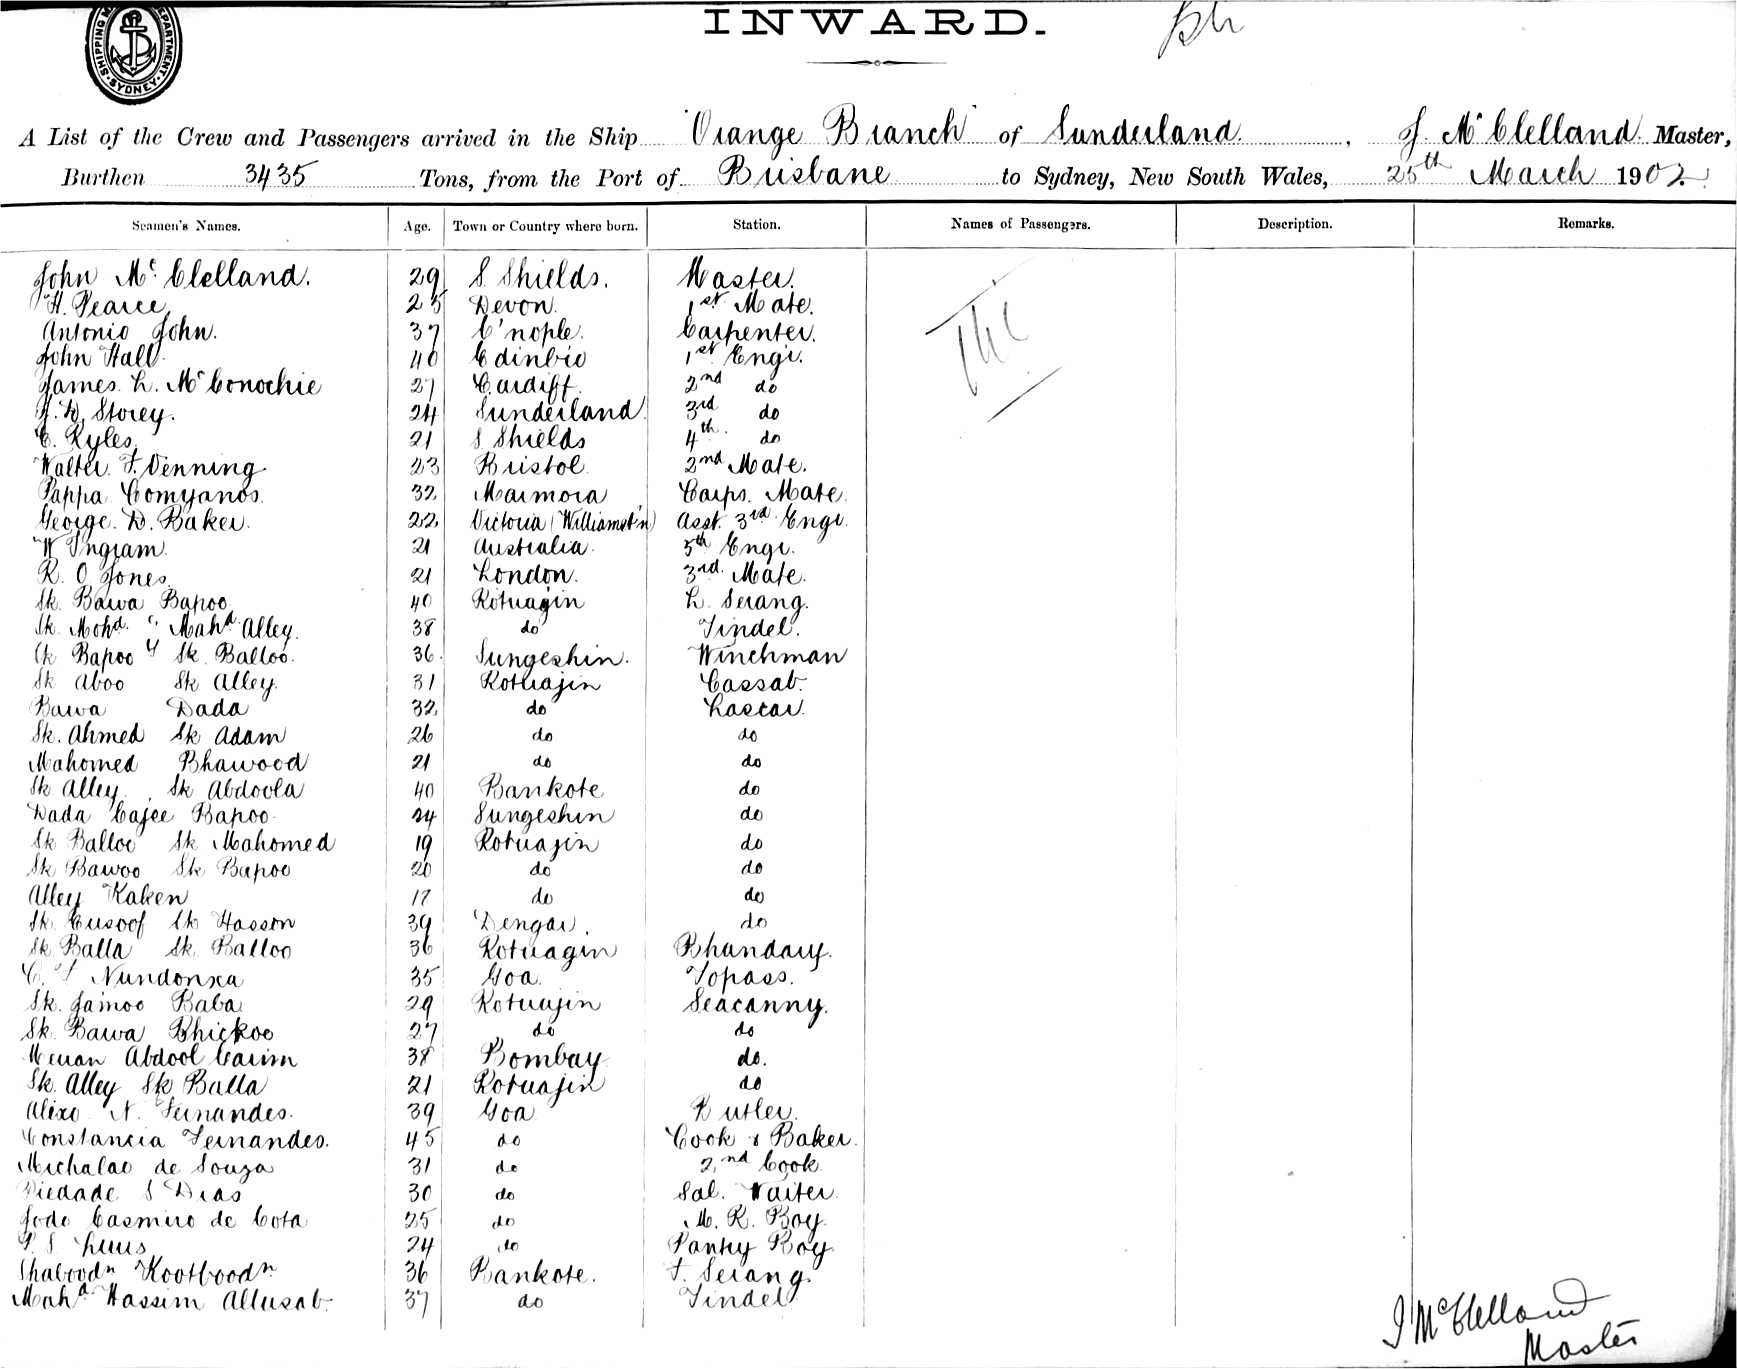 INWARD.
SHIPPING M DEPARTMENT. SYDNEY
A List of the Crew and Passengers arrived in the Ship "Orange Branch" of Sunderland. , J. McClelland. Master,
Burthen 3435 Tons, from the Port of Brisbane to Sydney, New South Wales, 25th March 1902
Seamen's Names. Age. Town or Country where born. Station. Names of Passengers. Description. Remarks.
John McClelland. 29 S. Shields. Master.
H. Pearce 25 Devon. 1st Mate.
Antonio John. 37 C'nople. Carpenter.
John Hall 40 Edinbro 1st Engr.
James. L. McConochie 27 Cardiff. 2nd do
J. W. Storey. 24 Sunderland 3rd do
C. Ryles. 21 S Shields 4th. do
Walter. F. Venning 23 Bristol 2nd Mate.
Pappa Comyanos. 32 Marmora Carps. Mate.
George. D. Baker. 22 Victoria (Williamst'n) Asst. 3rd Engr.
W Ingram. 21 Australia. 5th Engr.
R. O Jones. 21 London. 3rd. Mate.
Sk. Bawa Bapoo 40 Rotnagin L. Serang.
Sk. Mohd. Mahd. Alley. 38 do Tindel.
Sk Bapoo Sk. Balloo. 36. Sungeshin. Winchman
Sk Aboo Sk Alley. 31 Rotnajin Cassab.
Bawa Dada 32 do Lascar.
Sk. Ahmed Sk Adam 26 do do
Mahomed Bhawood 21 do do
Sk Alley. Sk Abdoola 40 Bankote do
Dada Cajee Bapoo. 24 Sungeshin do
Sk Balloo Sk Mahomed 19 Rotnajin do
Sk Bawoo Sk Bapoo 20 do do
Alley Kaken 17 do do
Sk. Eusoof Sk Hasson 39 Dengar. do
Sk Balla Sk. Balloo 36 Rotnagin Bhandary.
C. Nundonxa 35 Goa. Topass.
Sk. Jamoo Baba 29 Rotnajin Seacunny.
Sk. Bawa Bhickoo 27 do do
Meuan Abdool Carim 38 Bombay do.
Sk. Alley Sk Balla 21 Rotnajin do
Alixo N. Fernandes. 39 Goa Butler.
Constancia Fernandes. 45 do Cook & Baker.
Michalao de Souza 31 do 2nd Cook
Piedade S Dias 30 do Sal. Waiter.
Jode Casmiro de Cota 25 do M. R. Boy.
P. S. 24 do Pantry Boy
Shaboodn Kootboodn 36 Bankote. F. Serang.
Mahd Hassim Allusab. 37 do Tindel
J McClelland
Master